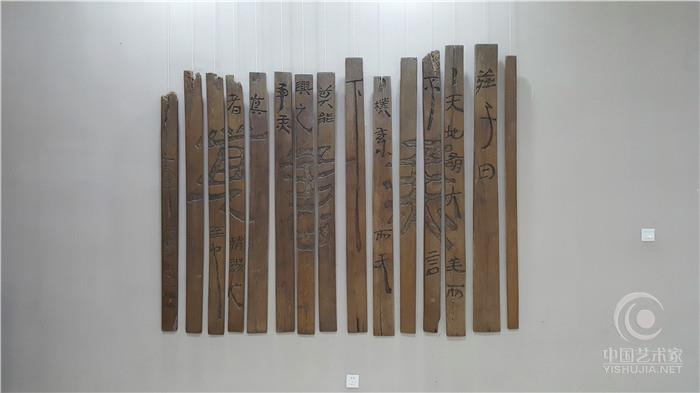 莊子曰
天地有大美而
不言
樸素而天
下
莫能
與之
爭美
真
者精誠之
至也
中国艺术家
YISHUJIA.NET